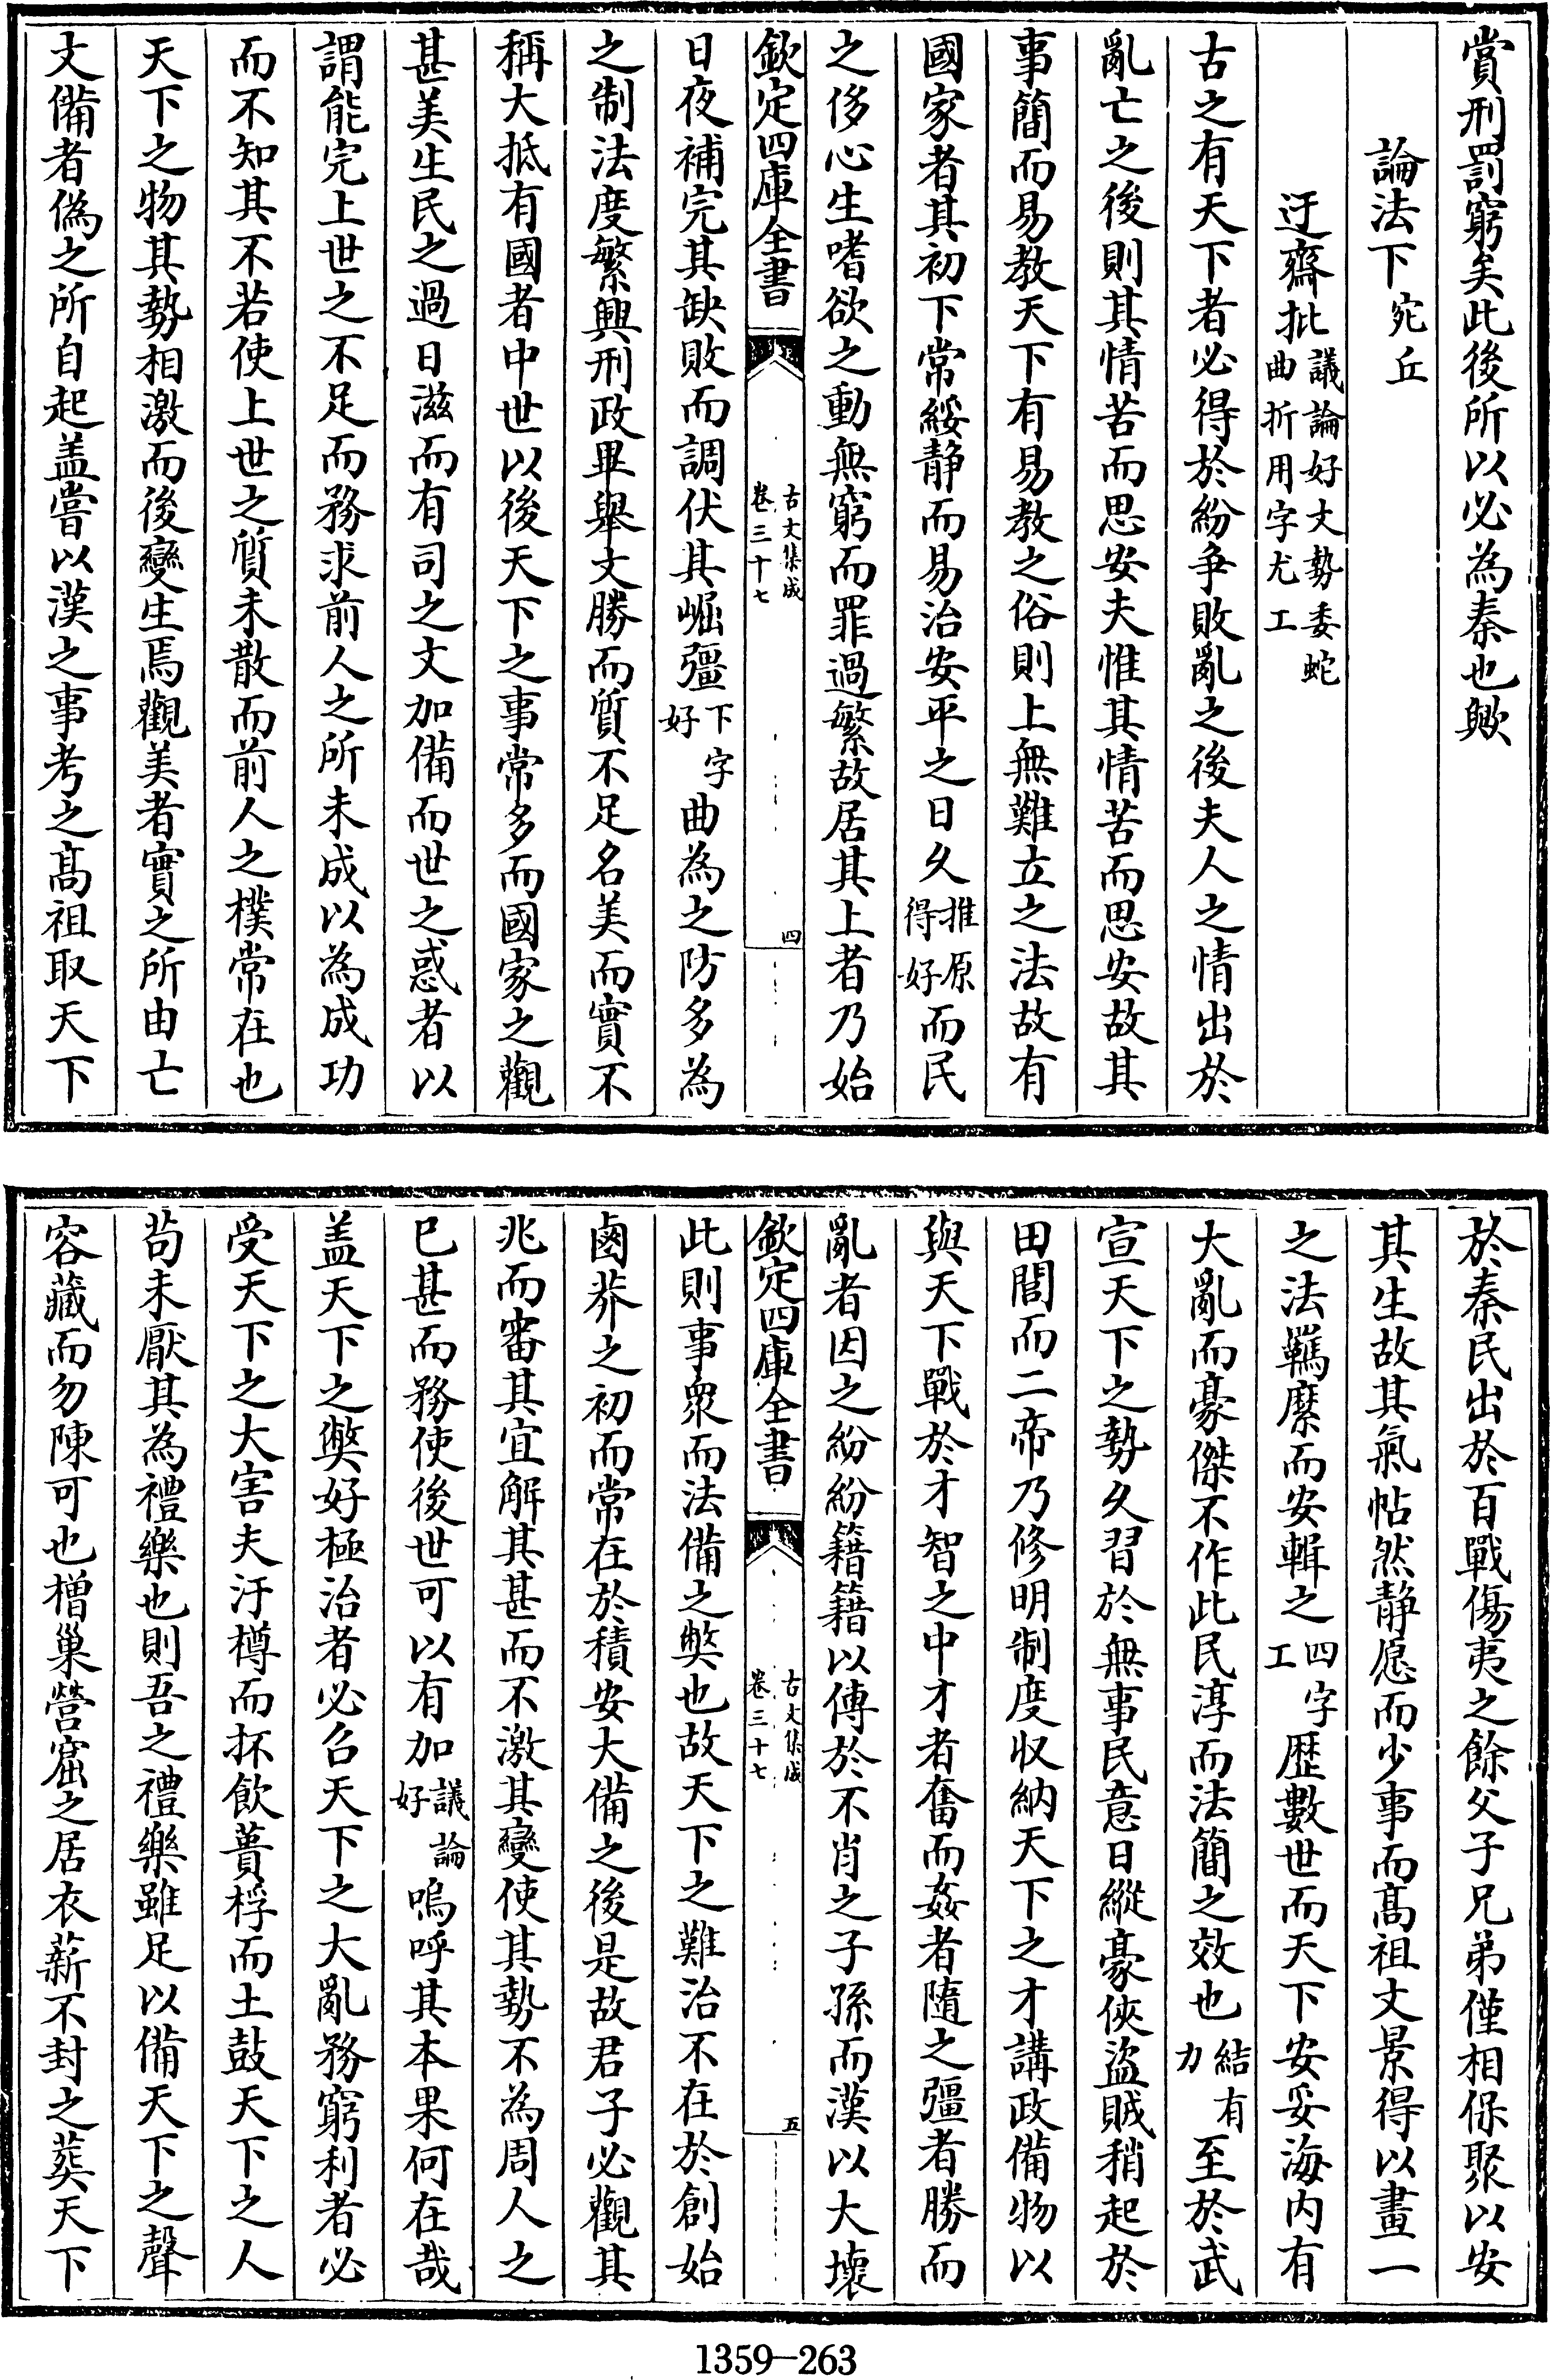 賞刑罰窮矣此後所以必為秦也歟
論法下 宛丘
迂齋批 議論好文勢委蛇曲折用字尤工
古之有天下者必得於紛争敗亂之後夫人之情出於
亂亡之後則其情苦而思安夫惟其情苦而思安故其
事簡而易教天下有易教之俗則上無難立之法故有
國家者其初下常綏静而易治安平之日久 推原得好 而民
之侈心生嗜欲之動無窮而罪過繁故居其上者乃始
欽定四庫全書 古文集成 卷三十七 四
日夜補完其缺敗而調伏其崛彊 下字好 曲為之防多為
之制法度繁興刑政畢舉文勝而質不足名美而實不
稱大抵有國者中世以後天下之事常多而國家之觀
甚美生民之過日滋而有司之文加備而世之惑者以
謂能完上世之不足而務求前人之所未成以為成功
而不知其不若使上世之質未散而前人之樸常在也
天下之物其勢相激而後變生焉觀美者實之所由亡
文備者偽之所自起盖嘗以漢之事考之髙祖取天下
於秦民出於百戰傷夷之餘父子兄弟僅相保聚以安
其生故其氣帖然静愿而少事而髙祖文景得以畫一
之法羈縻而安輯之 四字工 歴數世而天下安妥海内有
大亂而豪傑不作此民淳而法簡之效也 結有力 至於武
宣天下之勢久習於無事民意日縱豪俠盜賊稍起於
田閭而二帝乃修明制度收納天下之才講政備物以
與天下戰於才智之中才者奮而姦者隨之彊者勝而
亂者因之紛紛籍籍以傳於不肖之子孫而漢以大壞
欽定四庫全書 古文集成 卷三十七 五
此則事衆而法備之獘也故天下之難治不在於創始
鹵莽之初而常在於積安大備之後是故君子必觀其
兆而審其宜解其甚而不激其變使其勢不為周人之
已甚而務使後世可以有加 議論好 嗚呼其本果何在哉
盖天下之獘好極治者必召天下之大亂務窮利者必
受天下之大害夫汙樽而抔飲蕢桴而土鼓天下之人
苟未厭其為禮樂也則吾之禮樂雖足以備天下之聲
容藏而勿陳可也橧巢營窟之居衣薪不封之葬天下
1359-263